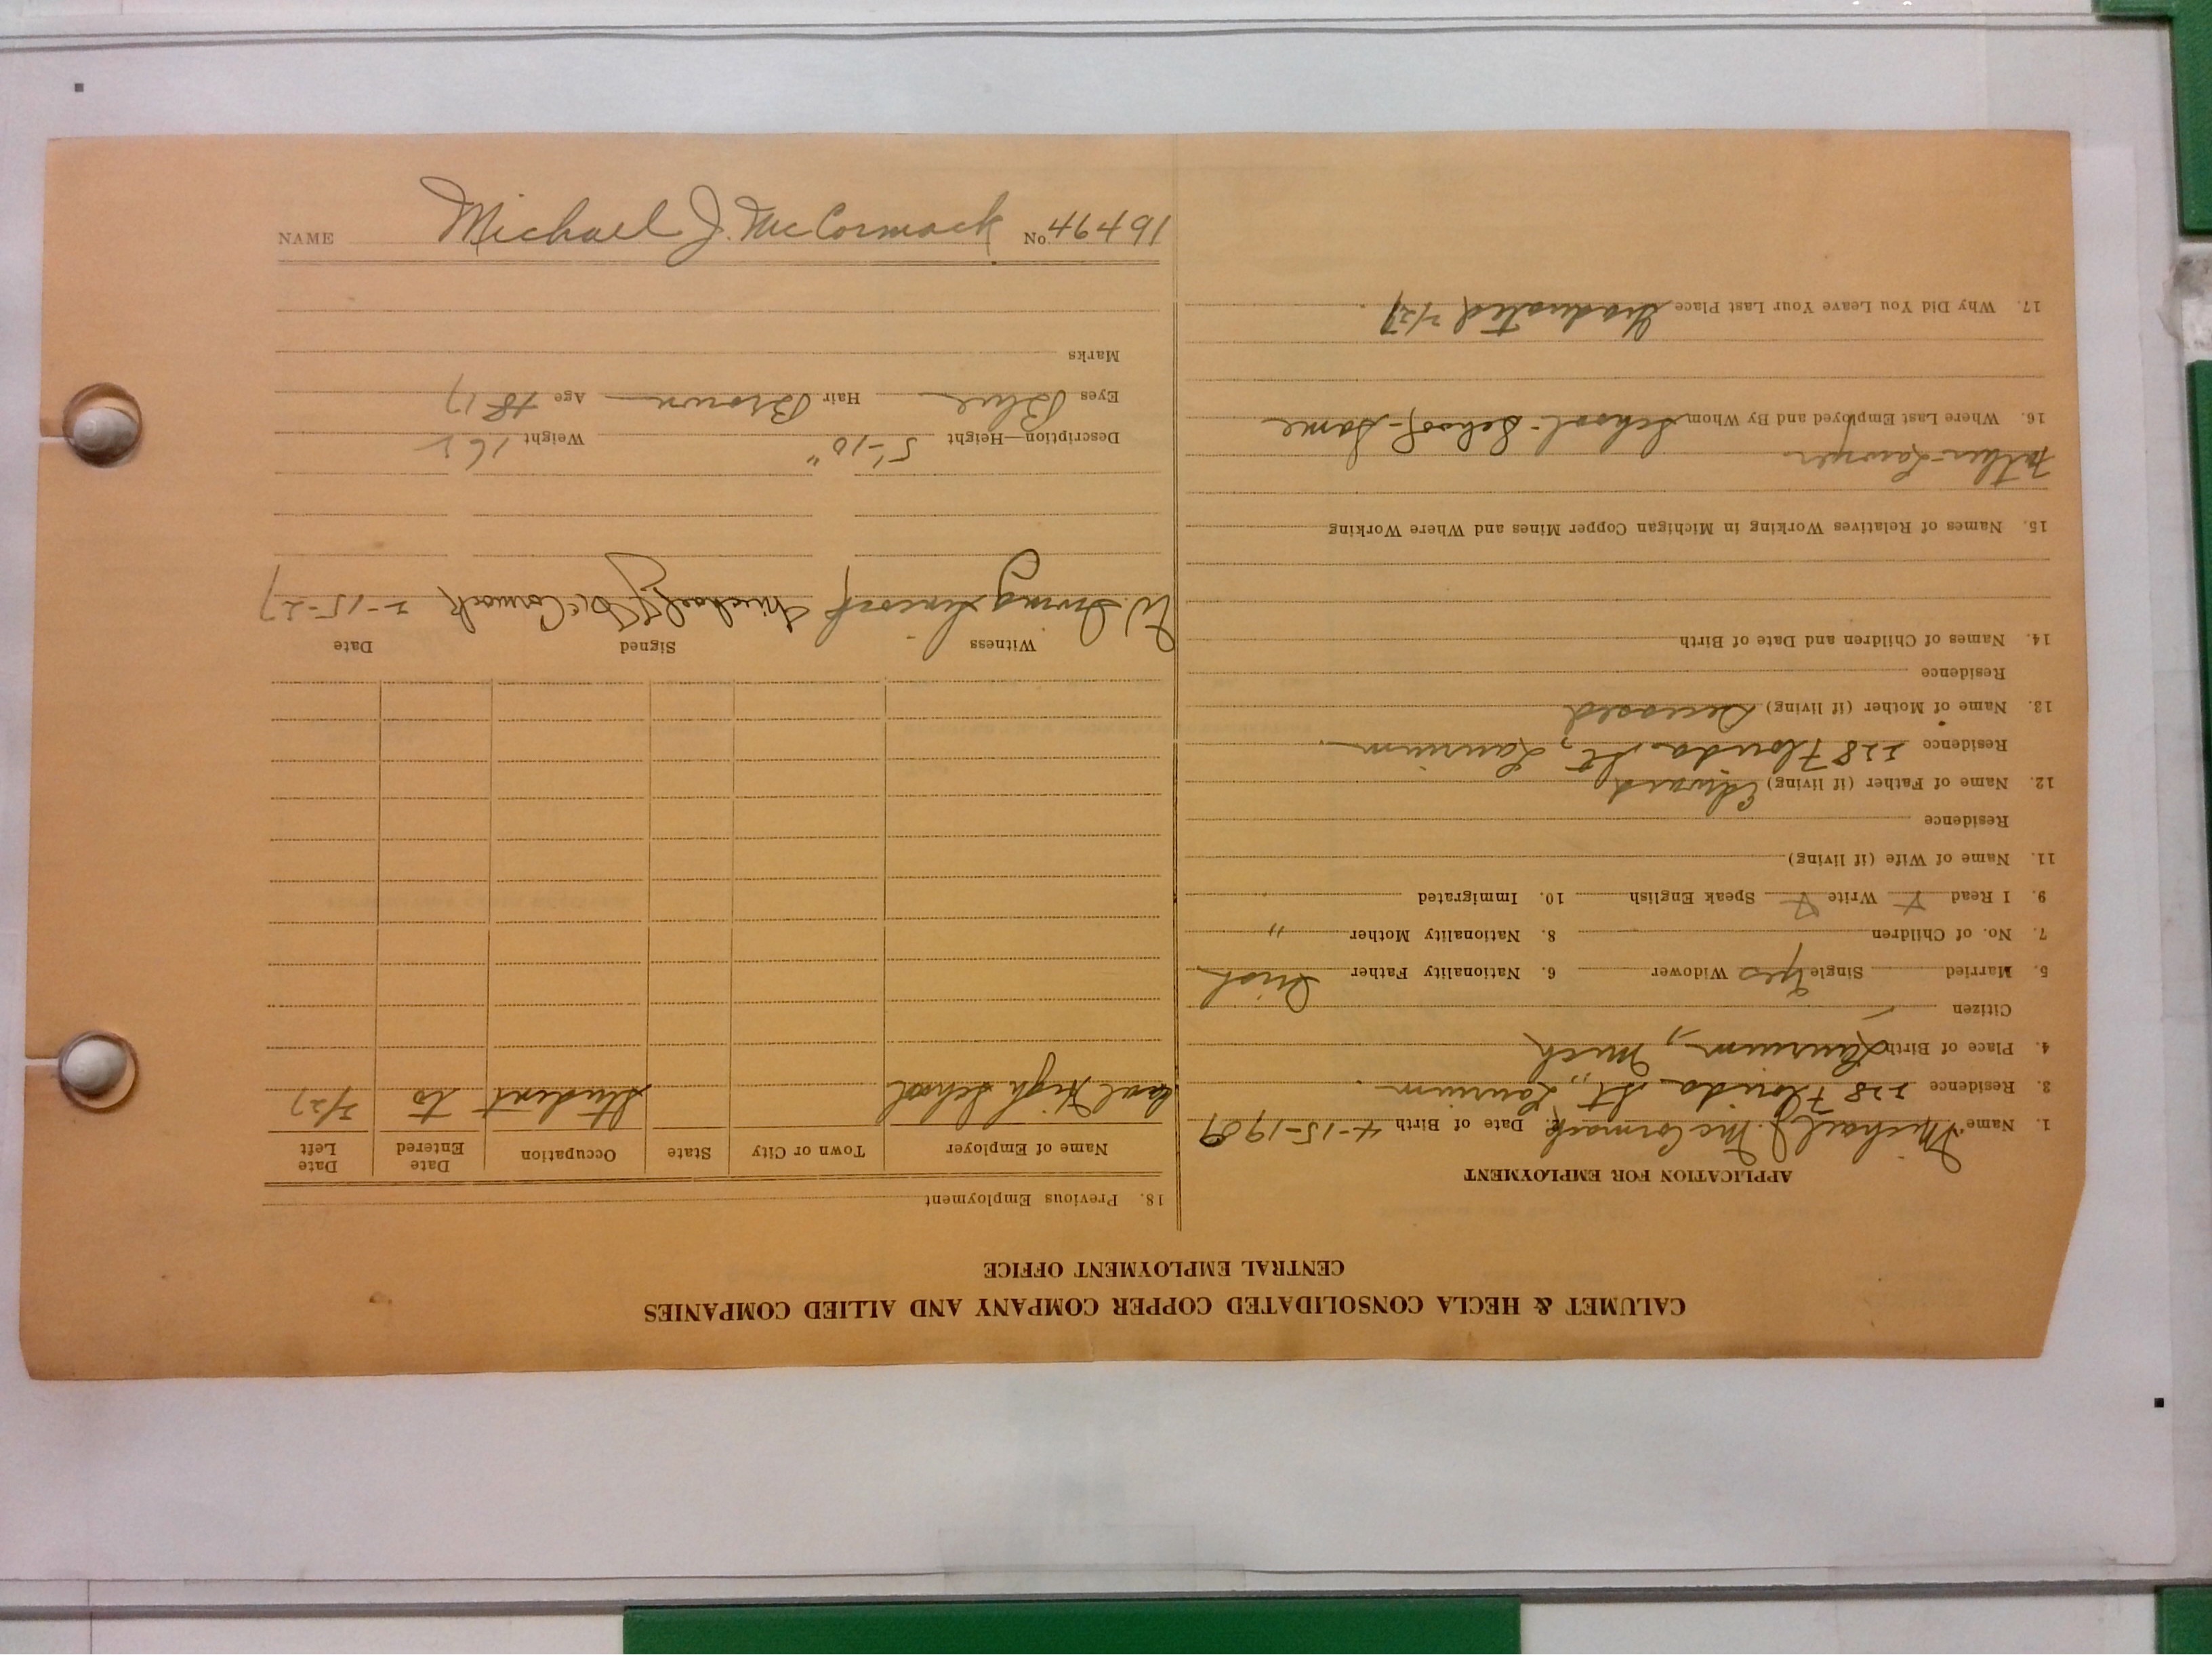 CALUMET & HECLA CONSOLIDATED COPPER COMPANY AND ALLIED COMPANIES
CENTRAL EMPLOYMENT OFFICE
APPLICATION FOR EMPLOYMENT
1. Name Michael J. McCormack Date of Birth 4-15-1909
3. Residence 228 Florida St., Laurium
4. Place of Birth Laurium, Mich
Citizen
5. Married Single Yes Widower 6. Nationality Father Irish
7. No. of Children 8. Nationality Mother "
9. I Read Write Speak English 10. Immigrated
11. Name of Wife (if living)
Residence
12. Name of Father (if living) Edward
Residence 228 Florida St, Laurium
13. Name of Mother (if living) Deceased
Residence
14. Names of Children and Date of Birth
15. Names of Relatives Working in Michigan Copper Mines and Where Working
Father-Lawyer
16. Where Last Employed and By Whom School- School- Same
17. Why Did You Leave Your Last Place Graduated 2/27
18. Previous Employment
Name of Employer Town or City State Occupation Date Entered Date Left
High School Student to 2/27
Witness Signed Date
W. Irving Michael J McCormack 2-15-27
Description—Height 5'-10" Weight 165
Eyes Blue Hair Brown Age 18 17
Marks
NAME Michael J. McCormack No. 46491